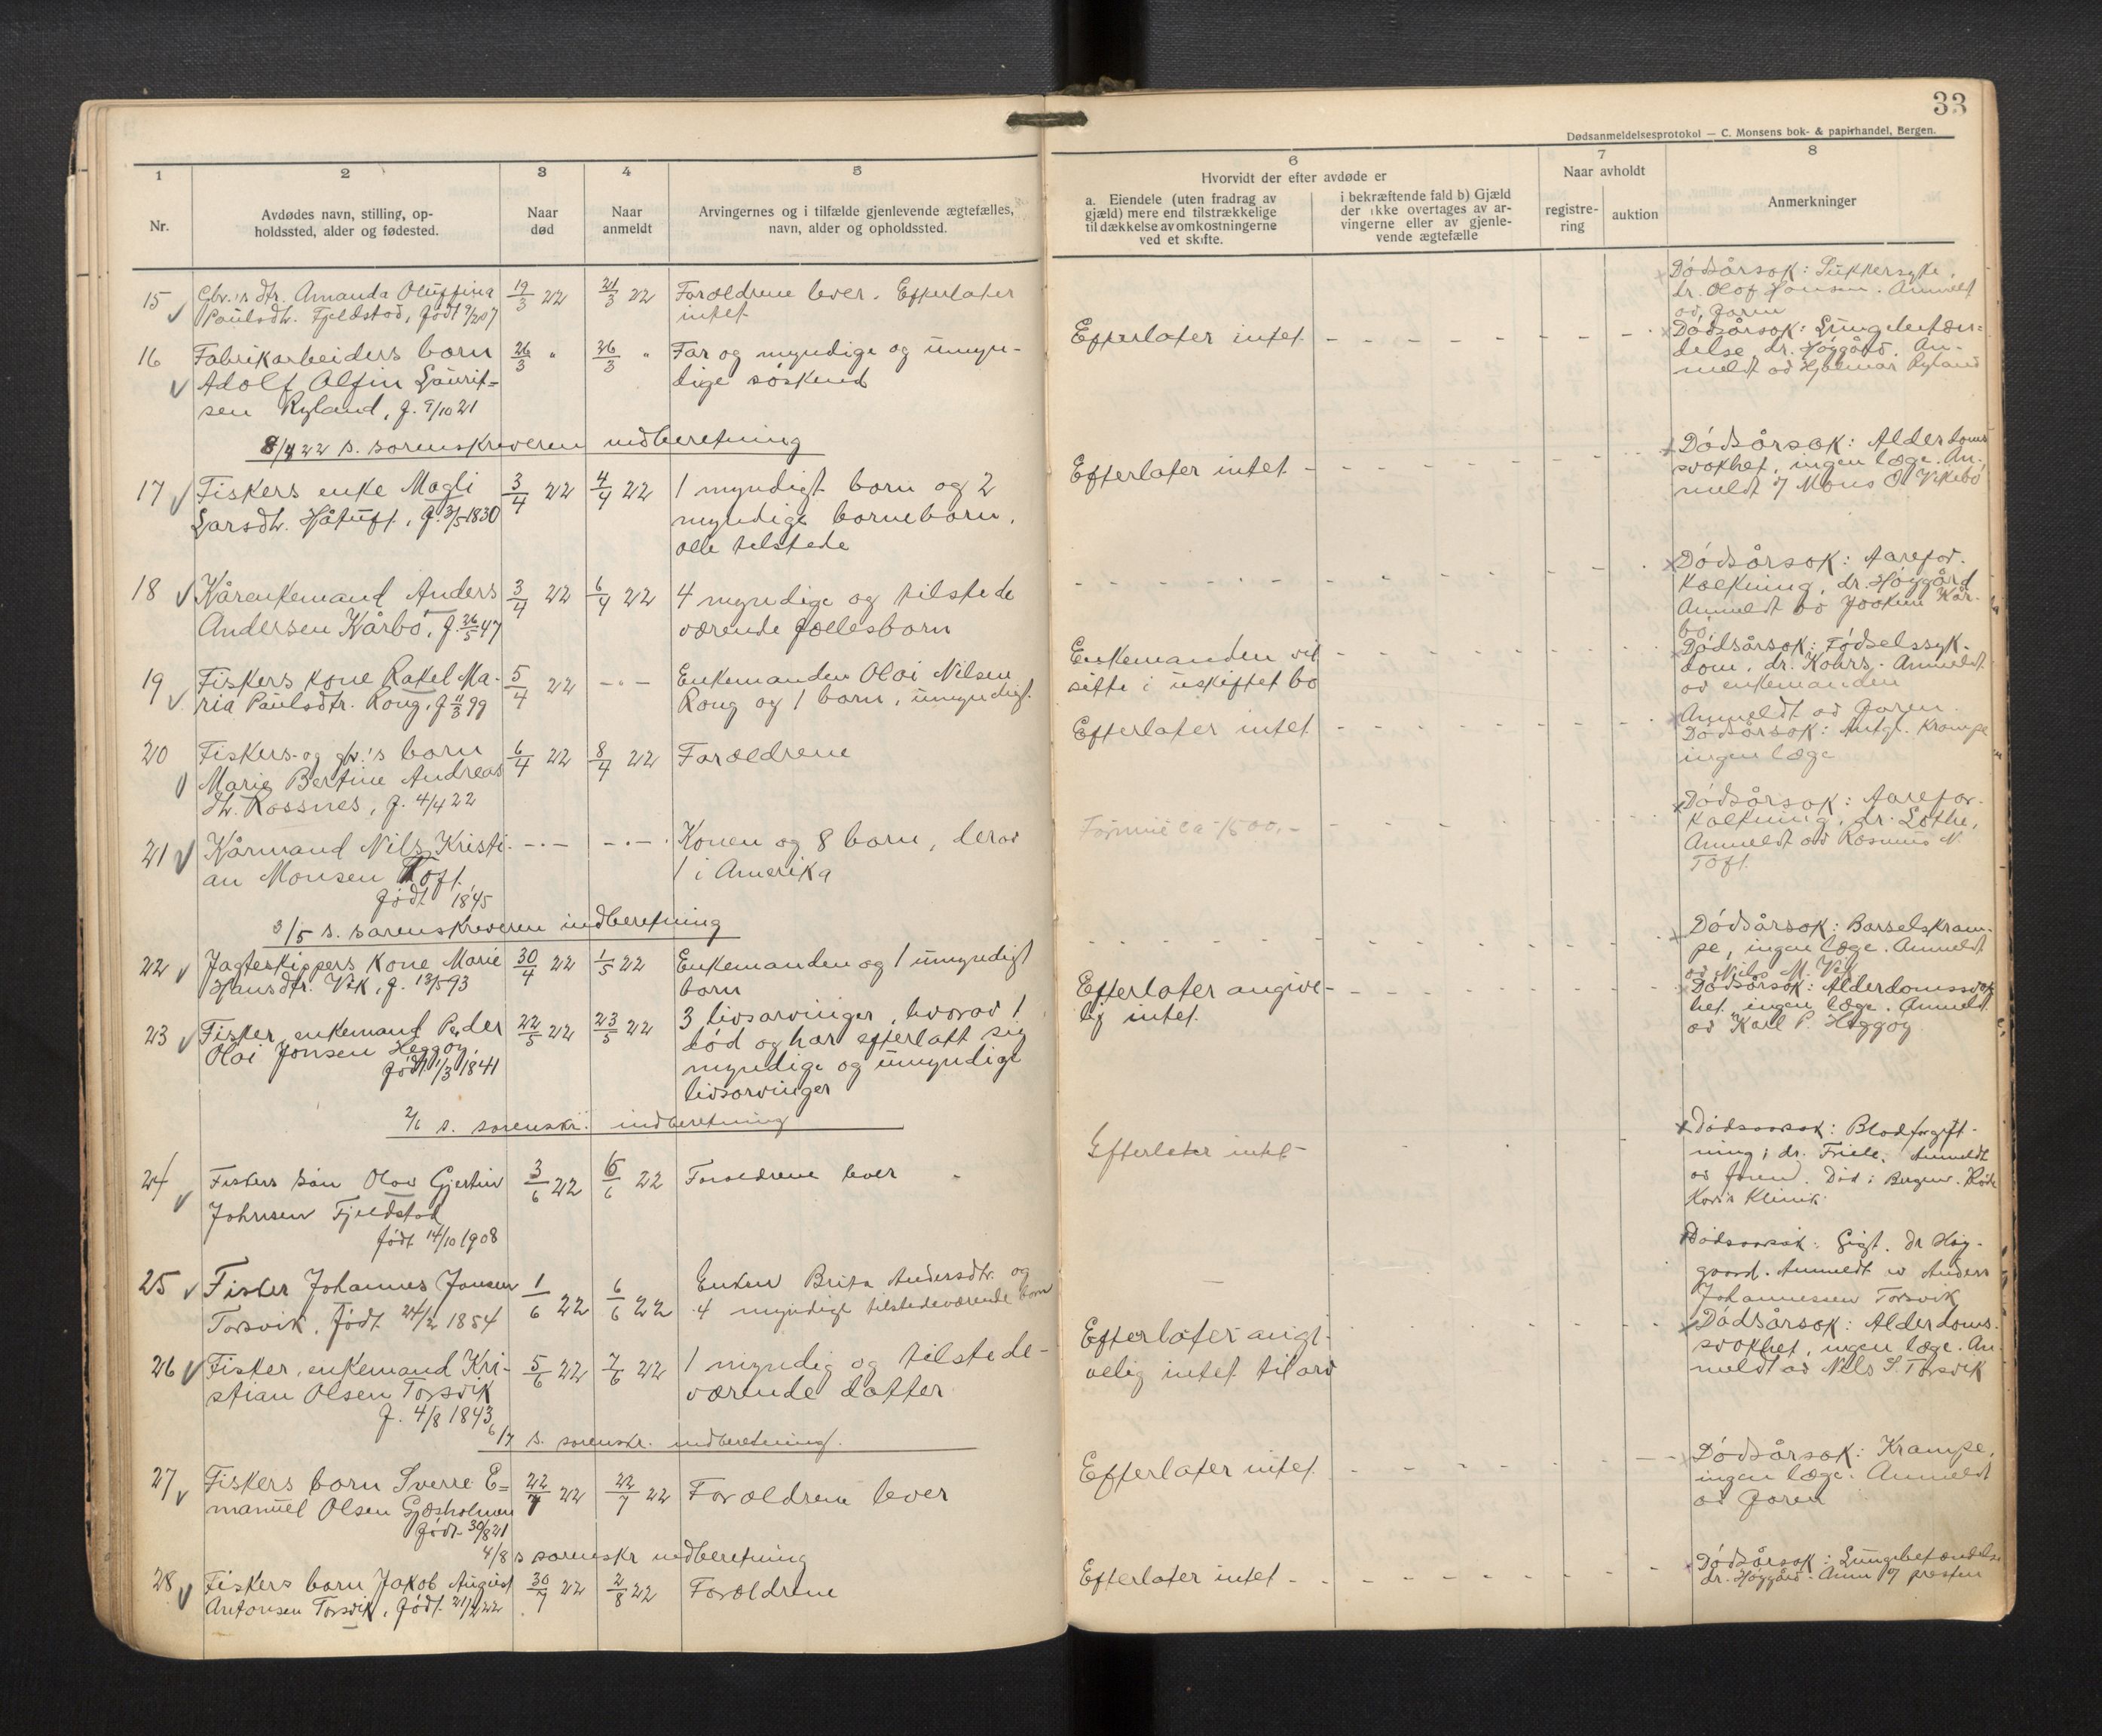 33
Dødsanmeldelsesprotokol — C. Monsens bok- & papirhandel, Bergen.
1
2
3
4
5
6
7
8
Nr.
Avdødes navn, stilling, op-
holdssted, alder og fødested.
Naar
død
Naar
anmeldt
Arvingernes og i tilfælde gjenlevende ægtefælles,
navn, alder og opholdssted.
Hvorvidt der efter avdøde er
a. Eiendele (uten fradrag av
gjæld) mere end tilstrækkelige
til dækkelse av omkostningerne
ved et skifte.
i bekræftende fald b) Gjæld
der ikke overtages av ar-
vingerne eller av gjenle-
vende ægtefælle
Naar avholdt
registre-
ring
auktion
Anmerkninger
15 Gbr.'s dtr. Amanda Oluffina
Paulsdtr. Fjeldstad, født 9/2 07
19/3 22
21/3 22
Forældrene lever. Efterlater
intet
Dødsårsak: Sukkersyke,
dr. Olaf Hansen. Anmeldt
av faren
16 Fabrikarbeiders barn
Adolf Alfin Laurit=
sen Ryland, f. 9/10 21
26/3 "
26/3 "
Far og myndige og umyn-
dige søskend
Efterlater intet
Dødsårsak: Lungebetæn=
delse, dr. Høygård. An-
meldt av Hjalmar Ryland
8/4 22 s. sorenskriveren indberetning
17 Fiskers enke Magli
Larsdtr. Håtuft, f. 3/5 1830
3/4 22
4/4 22
1 myndigt barn og 2
myndige barnebarn,
alle tilstede
Efterlater intet
Dødsårsak: Alderdoms
svakhet, ingen læge. An-
meldt af Mons O. Vikebø
18 Kårenkemand Anders
Andersen Kårbø, f. 26/5 47
3/4 22
6/4 22
4 myndige og tilstede
værende fællesbarn
Dødsårsak: Aarefor-
kalkning, dr. Høygård
Anmeldt av Joakim Kår-
bø.
19 Fiskers kone Rakel Ma-
ria Paulsdtr. Rong, f. 11/3 99
5/4 22
Enkemanden Olai Nilsen
Rong og 1 barn, umyndigt
Enkemanden vil
sitte i uskiftet bo
Dødsårsak: Fødselssyk-
dom, dr. Kohrs. Anmeldt
av enkemanden
20 Fiskers- og gbr.'s barn
Marie Bertine Andreas
dtr. Rossnes, f. 4/4 22
6/4 22
8/4 22
Forældrene
Efterlater intet
Anmeldt av faren.
Dødsårsak: Antgl. Krampe
ingen læge
21 Kårmand Nils Kristi-
an Monsen Toft
født 1845
Konen og 8 barn, derav
1 i Amerika
Formue ca 1500,-
Dødsårsak: Aarefor-
kalkning, dr. Lothe,
Anmeldt av Rasmus N.
Toft.
3/5 s. sorenskriveren indberetning
22 Jagteskippers kone Marie
Hansdtr. Vik, f. 13/5 93
30/4 22
1/5 22
Enkemanden og 1 umyndigt
barn
Dødsårsak: Barselskram-
pe, ingen læge. Anmeldt
av Nils M. Vik
23 Fisker, enkemand Peder
Olai Jonsen Heggøy,
født 1/3 1841
22/5 22
23/5 22
3 livsarvinger, hvorav 1
død og har efterlatt sig
myndige og umyndige
livsarvinger
Efterlater angive-
lig intet
Dødsårsak: Alderdomssvak
het, ingen læge. Anmeldt
av Karl P. Heggøy
2/6 s. sorenskr. indberetning
24 Fiskers søn Olav Gjertin
Johnsen Fjeldstad
født 14/10 1908
3/6 22
6/6 22
Forældrene lever
Efterlater intet
Dødsaarsak: Blodforgift-
ning, dr. Friele. Anmeldt
av faren. Død i Bergen. Røde
Kors Klinik.
25 Fisker Johannes Jonsen
Torsvik, født 24/2 1854
1/6 22
6/6 22
Enken Brita Andersdtr. og
4 myndige tilstedeværende barn
Dødsaarsak: Gigt. Dr Høy-
gaard. Anmeldt av Anders
Johannessen Torsvik
26 Fisker, enkemand Kri-
stian Olsen Torsvik
f. 4/8 1843
5/6 22
7/6 22
1 myndig og tilstede-
værende datter
Efterlater angi-
velig intet til arv
Dødsårsak: Alderdoms-
svakhet, ingen læge. An-
meldt av Nils S. Torsvik
6/7 s. sorenskr. indberetning.
27 Fiskers barn Sverre E=
manuel Olsen Gjøsholmen
født 30/8 21
22/7 22
22/7 22
Forældrene lever
Efterlater intet
Dødsårsak: Krampe,
ingen læge. Anmeldt
av faren
4/8 s sorenskr indberetning
28 Fiskers barn Jakob August
Antonsen Torsvik, født 21/2 22
30/7 22
2/8 22
Forældrene
Efterlater intet
Dødsårsak: Lungebetændelse
dr. Høygård. Anm af presten